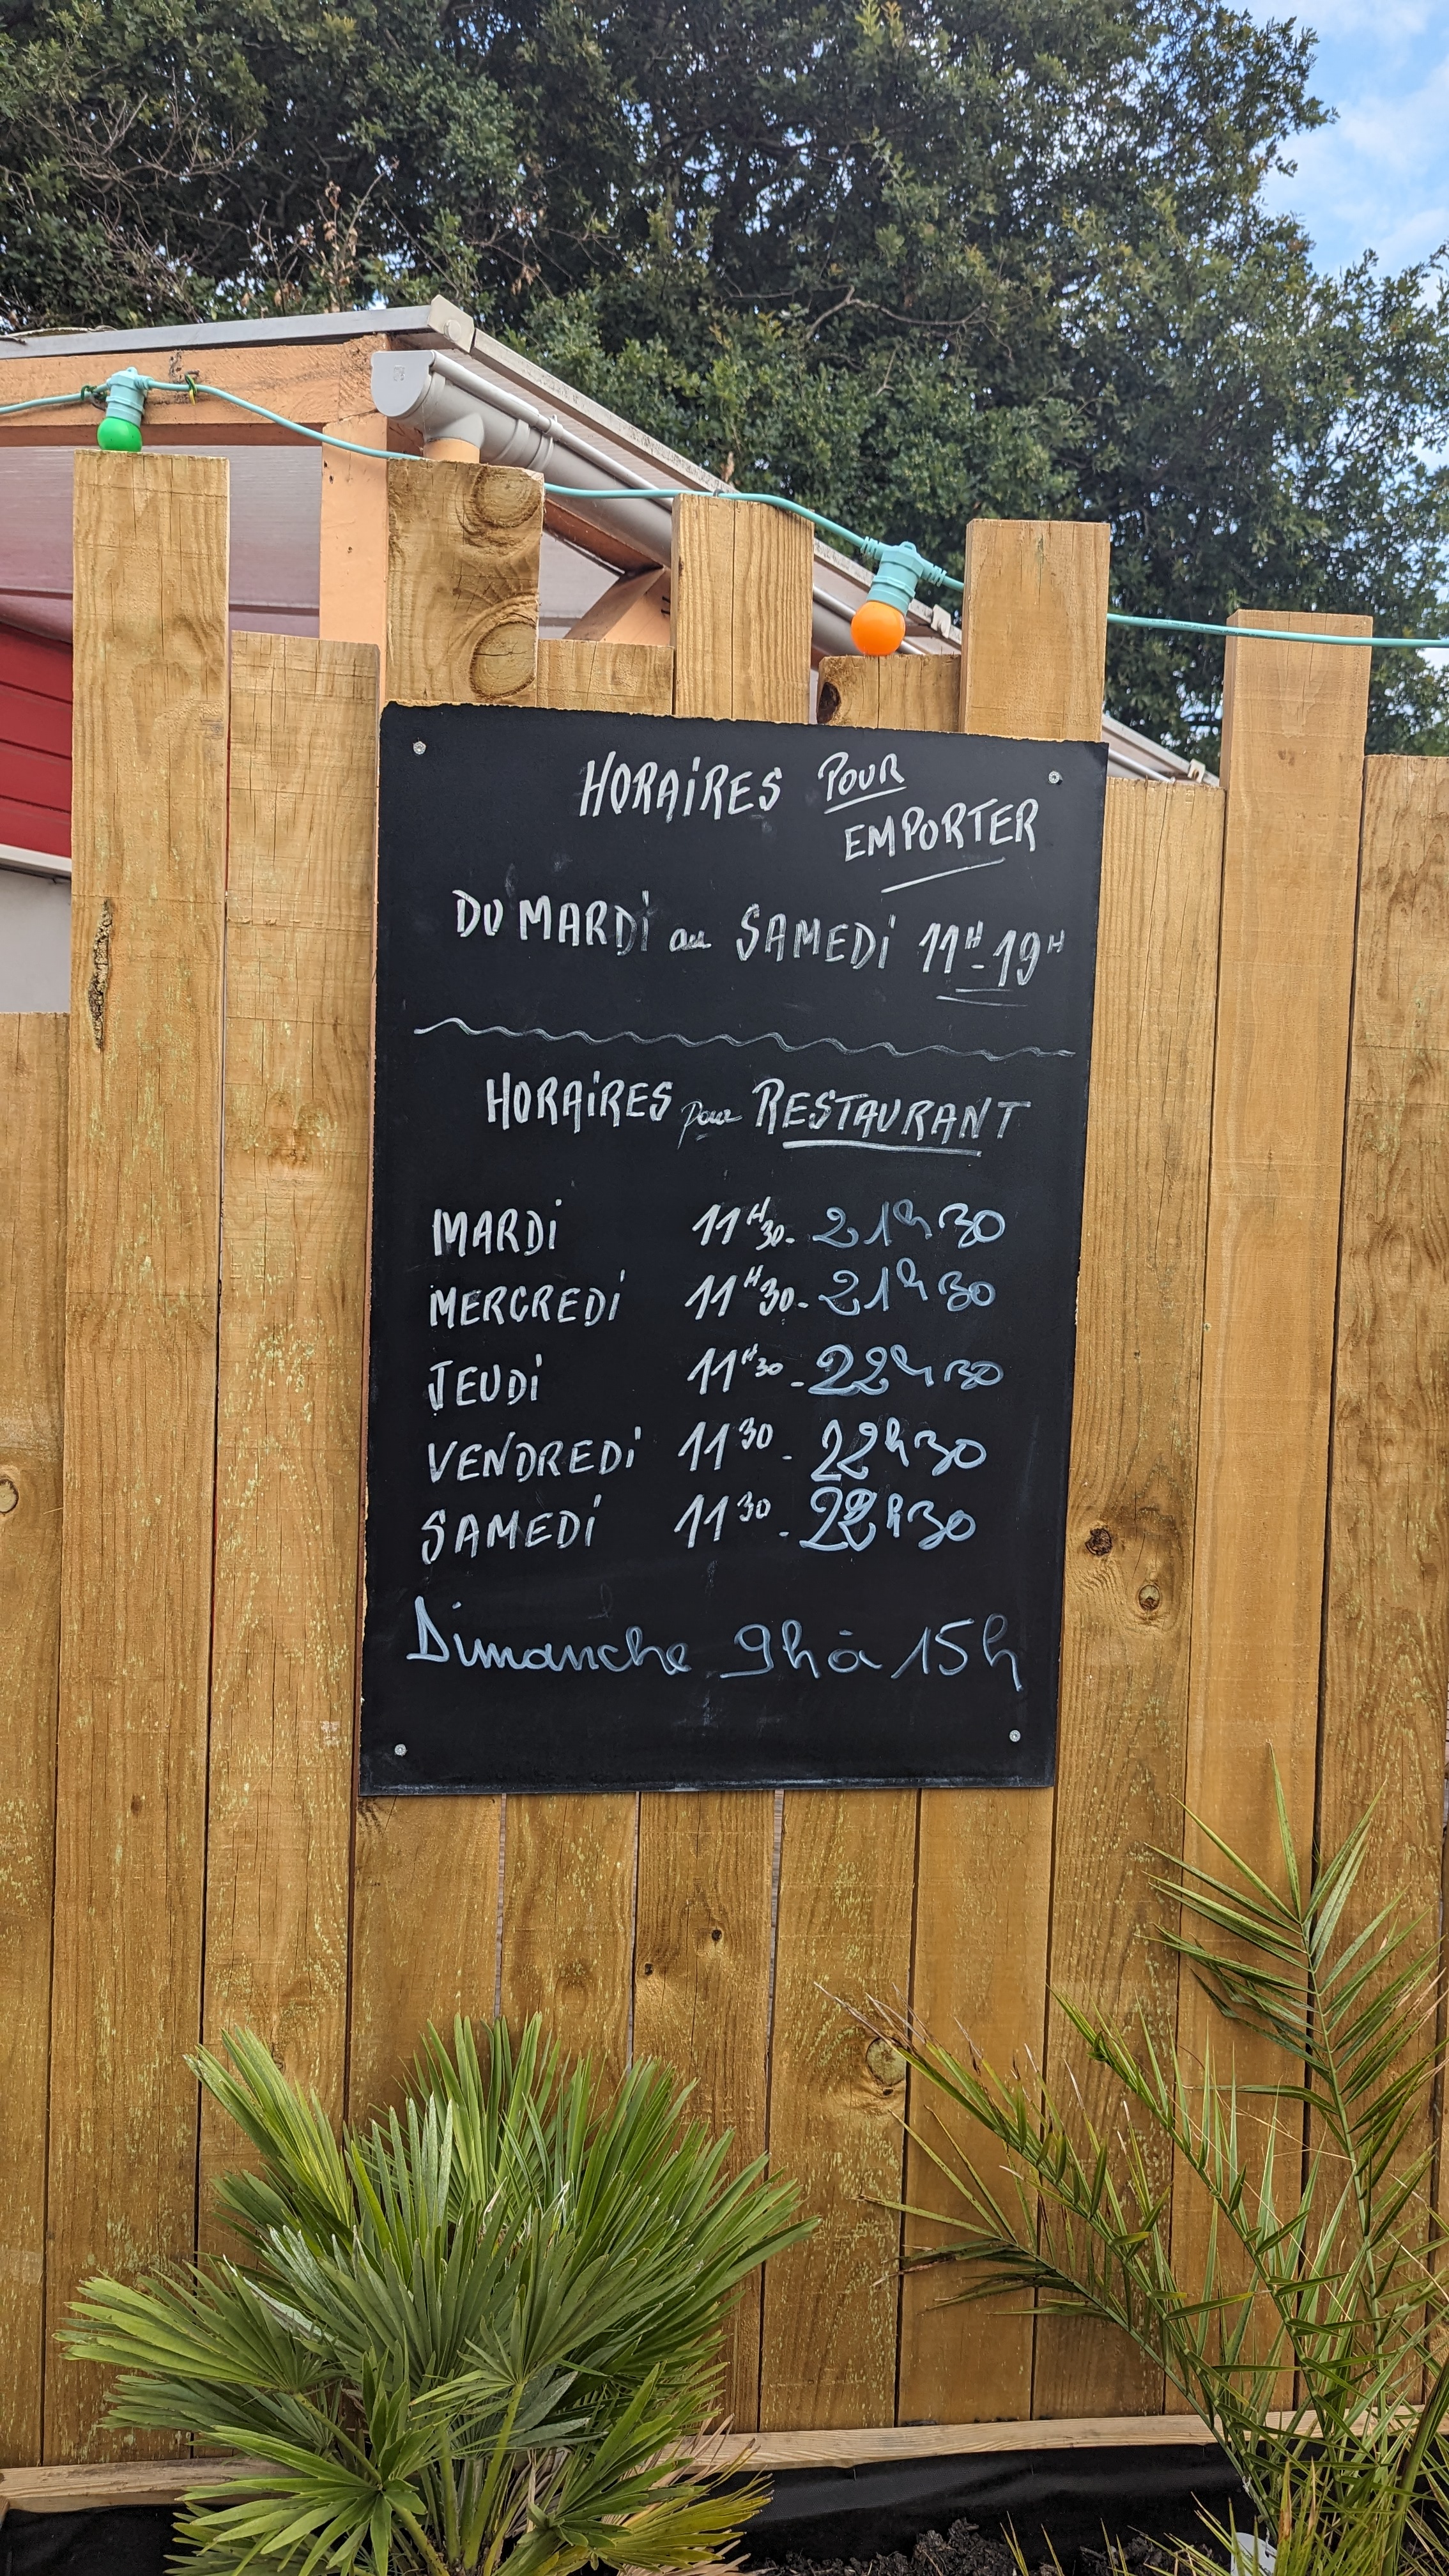 HORAIRES POUR
EMPORTER
DU MARDI au SAMEDI 11H-19H
HORAIRES pour RESTAURANT
MARDI 11H30- 21h30
MERCREDI 11H30- 21h30
JEUDI 11H30 - 22h30
VENDREDI 11 30 - 22h30
SAMEDI 11 30 - 22h30
Dimanche 9h à 15h